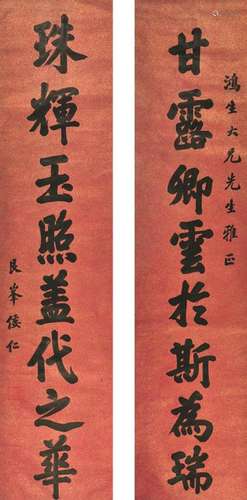 鴻生大兄先生雅正
甘露卿雲於斯為瑞
珠輝玉照盖代之華
艮峯倭仁